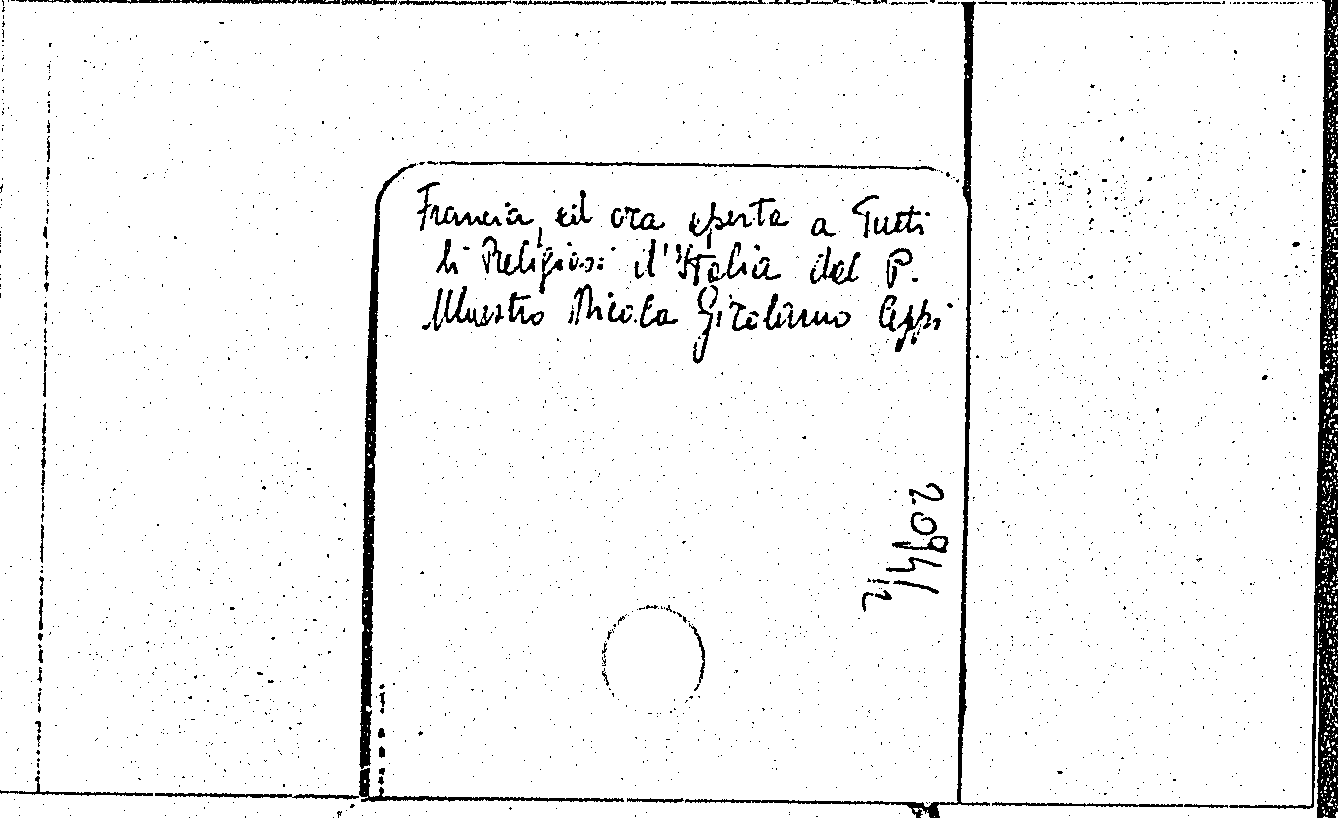 Francia, ed ora aperta a Tutti
li Religiosi d'Italia del P.
Maestro Nicola Girolamo Ceppi
2094/
12